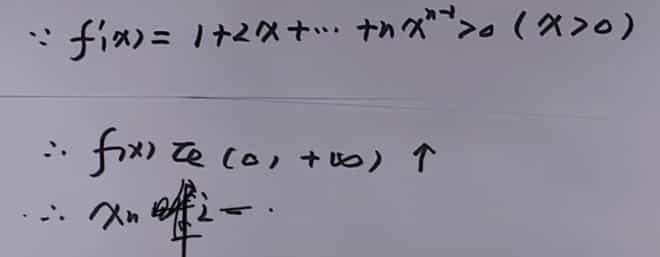 ∵ f'(x) = 1+2x+⋯+nx^{n-1}>0 (x>0)
∴ f(x) 在 (0, +∞) ↑
∴ xₙ 唯一.